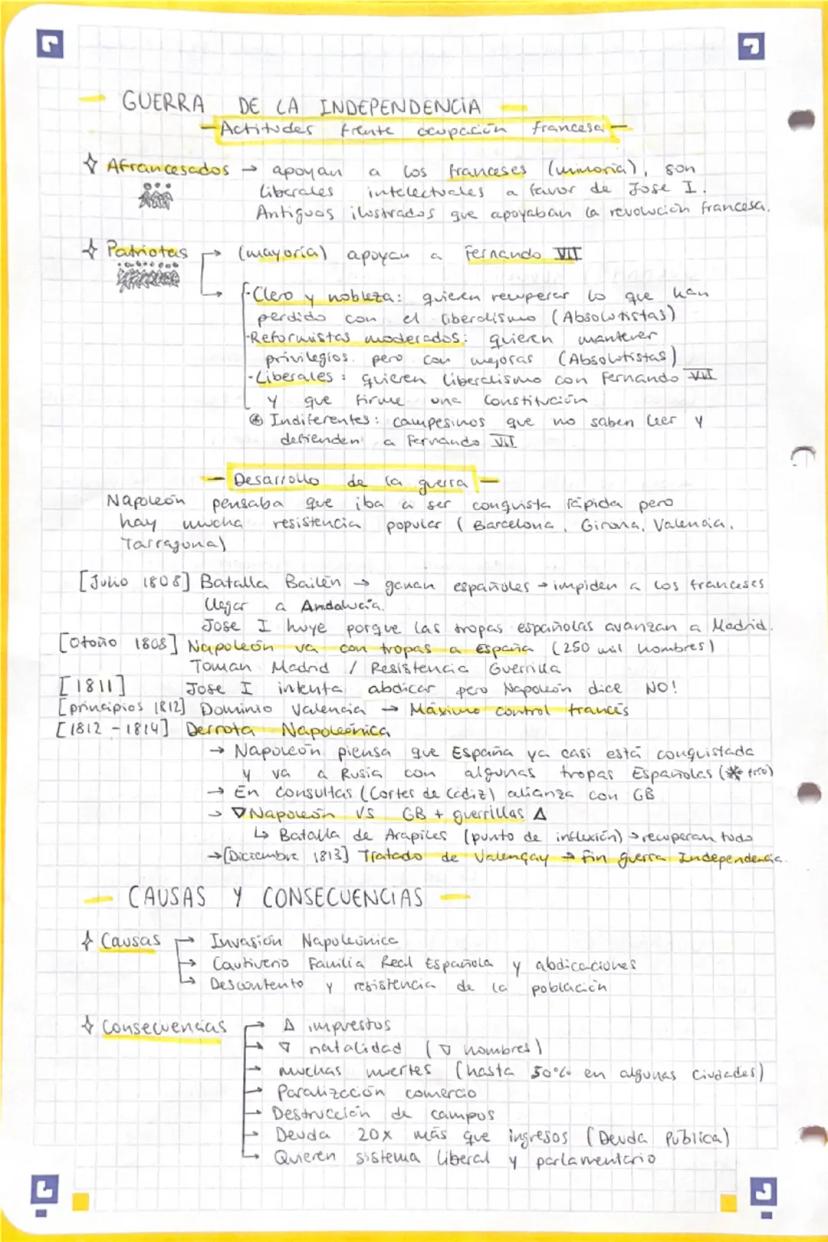 GUERRA DE LA INDEPENDENCIA
Actitudes frente ocupación francesa
Afrancesados → apoyan a los franceses (minoria), son
liberales intelectuales a favor de Jose I.
Antiguos ilustrados que apoyaban la revolución francesa.
Patriotas → (mayoría) apoyan a Fernando VII
→ - Clero y nobleza: quieren recuperar lo que han
perdido con el liberalismo (Absolutistas)
- Reformistas moderados: quieren mantener
privilegios pero con mejoras (Absolutistas)
- Liberales: quieren liberalismo con Fernando VII
y que firme una Constitución
Indiferentes: campesinos que no saben leer y
defienden a Fernando VII
Desarrollo de la guerra
Napoleón pensaba que iba a ser conquista rápida pero
hay mucha resistencia popular (Barcelona, Girona, Valencia,
Tarragona)
[Julio 1808] Batalla Bailén → ganan españoles → impiden a los franceses
llegar a Andalucía.
Jose I huye porque las tropas españolas avanzan a Madrid.
[Otoño 1808] Napoleón va con tropas a España (250 mil hombres)
Toman Madrid / Resistencia Guerrilla
[1811] Jose I intenta abdicar pero Napoleón dice NO!
[principios 1812] Dominio Valencia → Máximo control francés
[1812 - 1814] Derrota Napoleónica
→ Napoleón piensa que España ya casi está conquistada
y va a Rusia con algunas tropas Españolas (* frío)
→ En consultas (Cortes de Cádiz) alianza con GB
→ ▽ Napoleón VS GB + guerrillas Δ
↳ Batalla de Arapiles (punto de inflexión) → recuperan todo
→ [Diciembre 1813] Tratado de Valençay → Fin guerra Independencia.
CAUSAS Y CONSECUENCIAS
Causas → Invasión Napoleónica
→ Cautiverio Familia Real Española y abdicaciones
→ Descontento y resistencia de la población
Consecuencias → Δ impuestos
→ ▽ natalidad (▽ hombres)
→ muchas muertes (hasta 50% en algunas ciudades)
→ Paralización comercio
→ Destrucción de campos
→ Deuda 20x más que ingresos (Deuda Pública)
→ Quieren sistema liberal y parlamentario